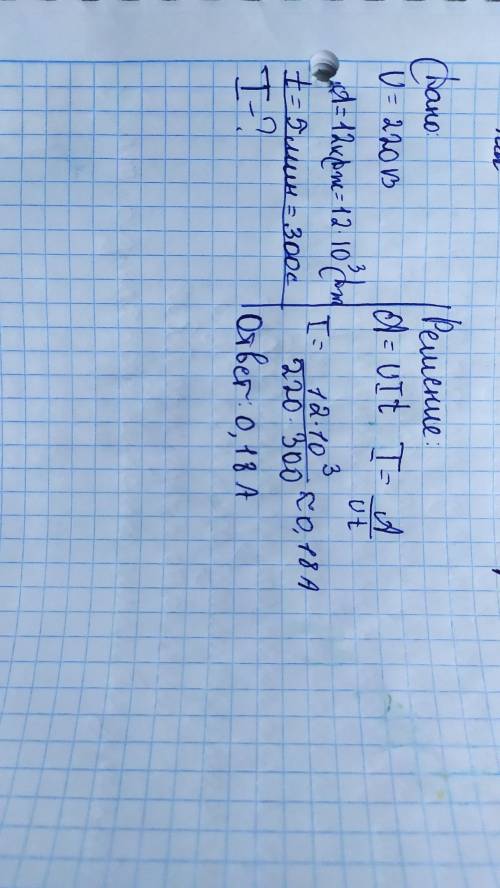 Дано:
U = 220 В
A = 12 кДж = 12 · 10³ Дж
t = 5 мин = 300 с
I - ?
Решение:
A = UIt I = A/Ut
I = 12·10³/220·300 ≈ 0,18 А
Ответ: 0,18 А